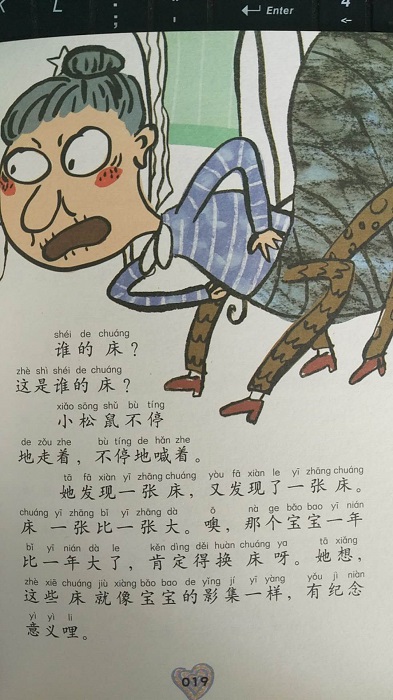 L
;
Enter
4
shéi de chuáng
谁的床？
zhè shì shéi de chuáng
这是谁的床？
xiǎo sōng shǔ bù tíng
小松鼠不停
de zǒu zhe bù tíng de hǎn zhe
地走着，不停地喊着。
tā fā xiàn yī zhāng chuáng yòu fā xiàn le yī zhāng chuáng
她发现一张床，又发现了一张床。
chuáng yī zhāng bǐ yī zhāng dà ō nà ge bǎo bao yī nián
床一张比一张大。噢，那个宝宝一年
bǐ yī nián dà le kěn dìng děi huàn chuáng ya tā xiǎng
比一年大了，肯定得换床呀。她想，
zhè xiē chuáng jiù xiàng bǎo bao de yǐng jí yī yàng yǒu jì niàn
这些床就像宝宝的影集一样，有纪念
yì yì li
意义哩。
019